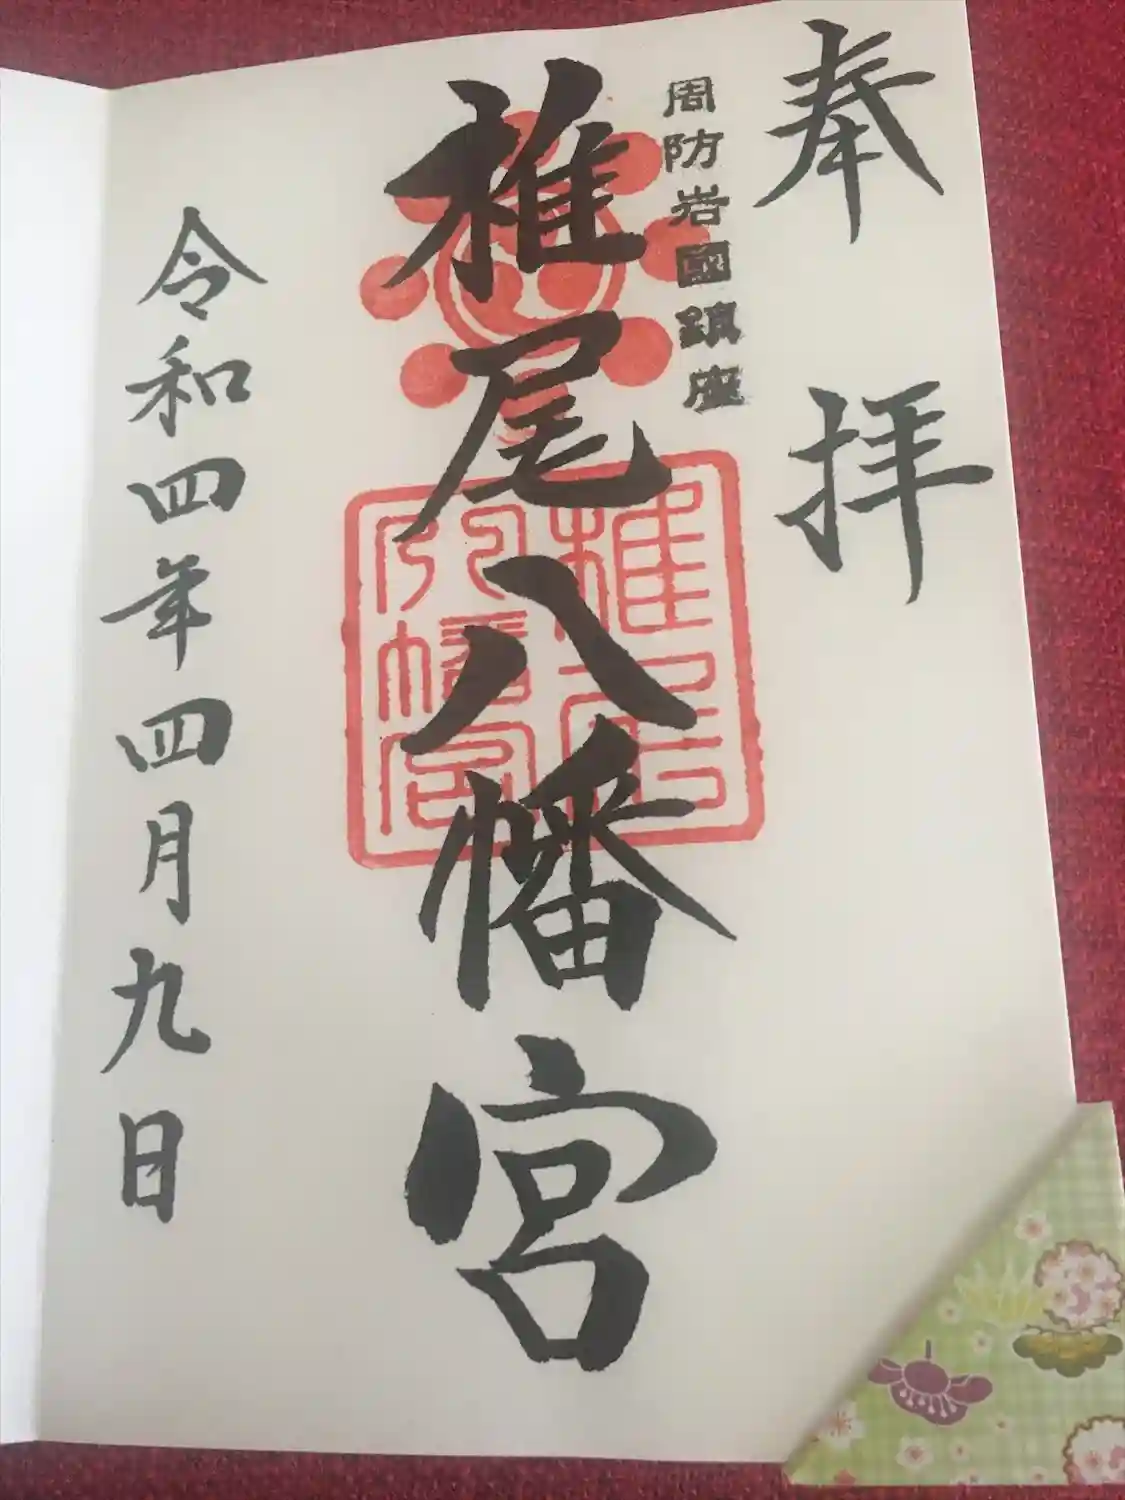 奉拝
周防岩國鎮座
椎尾八幡宮
椎尾
八幡宮
令和四年四月九日